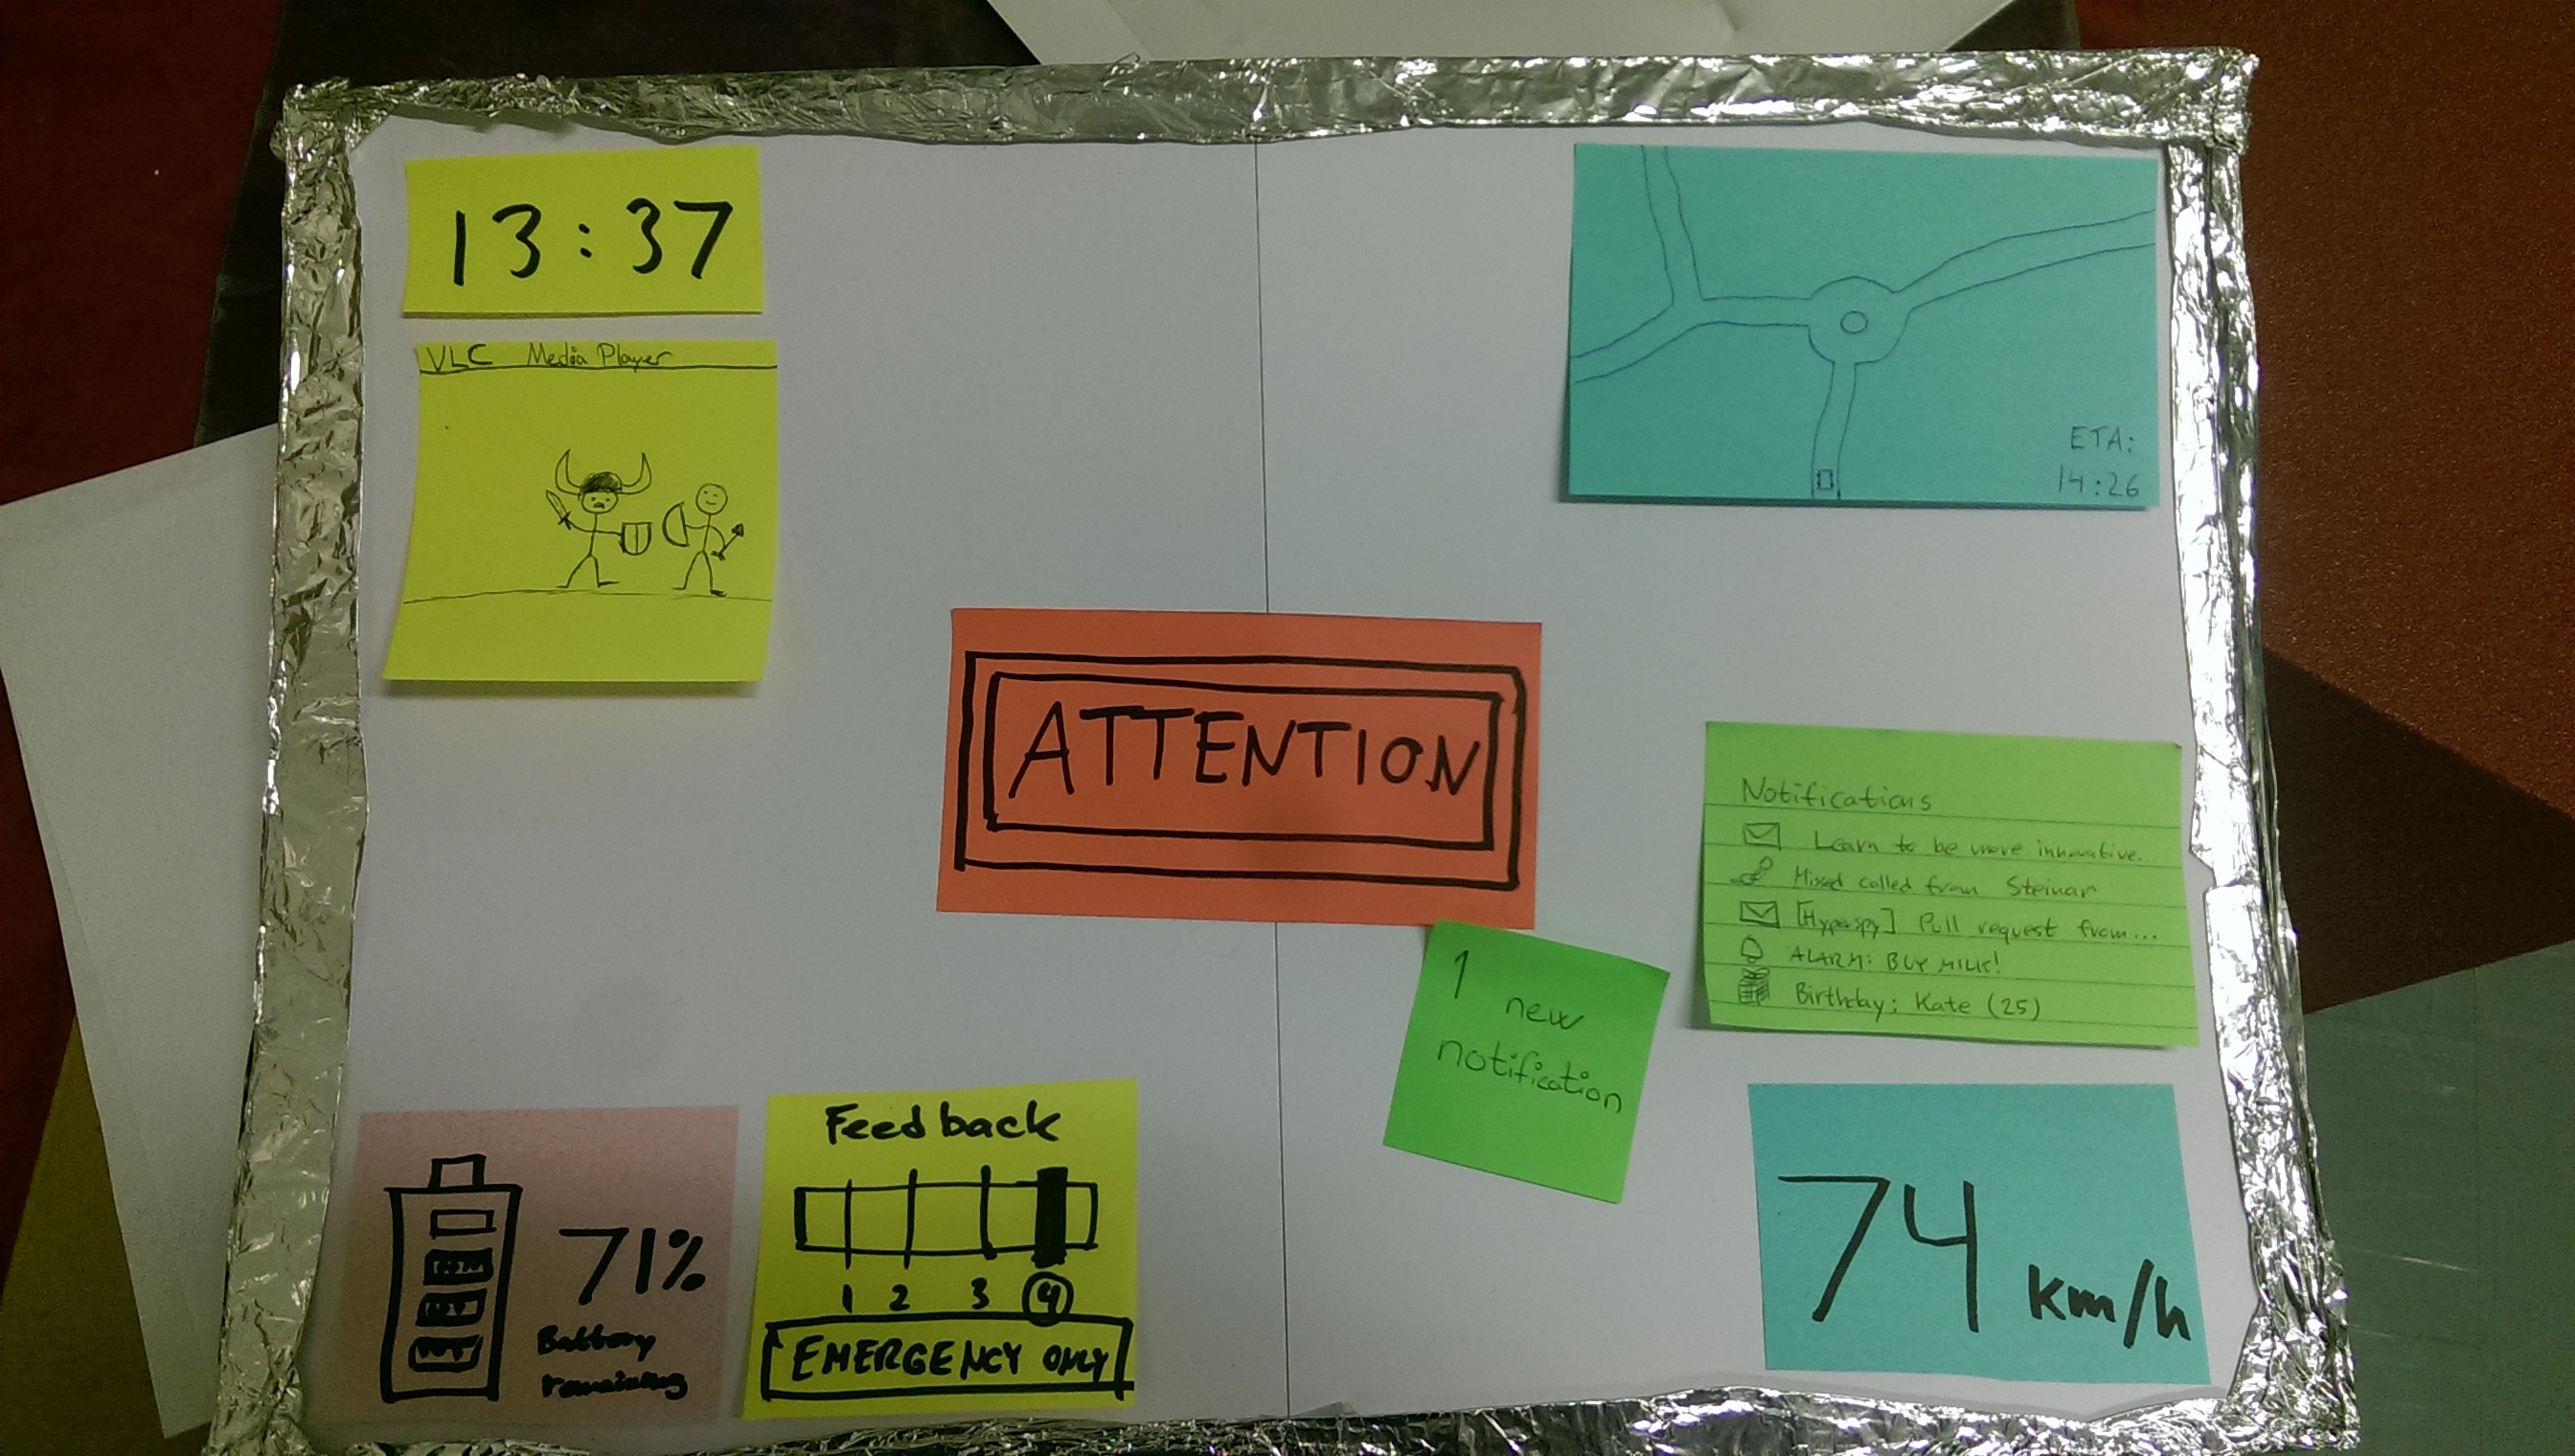 13:37
VLC Media Player
ETA:
14:26
ATTENTION
Notifications
Learn to be more innovative...
Missed called from Steinar
[Hyperspy] Pull request from...
ALARM: BUY MILK!
Birthday: Kate (25)
1 new
notification
71%
Battery
remaining
Feedback
1 2 3 4
EMERGENCY ONLY
74 km/h